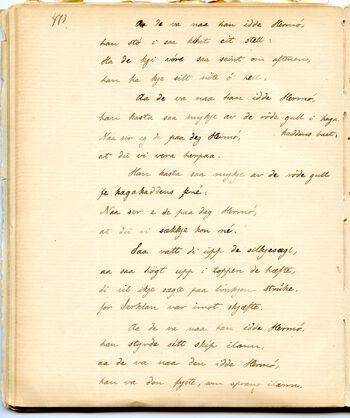 473
Aa de va naa han idde Hermó,
han stó i saa heit eit stell:
Ha de kji vóre saa seint om aftenen,
han ha kje silt nóte ó hell.
Aa de va naa han idde Hermó,
han kasta saa mykje av de róde gull i haga
Naa ser eg de paa deg Hermó, kaddens baat;
et du vi vera herpaa.
Han kasta saa mykje av de róde gull
pe hagakaddens kné:
Naa ser e de paa deg Hermó,
at du vi søkkje kon né.
Saa vatt di upp de silkjesægl,
aa saa högt upp i toppen de hæfte,
di vil ikje sægle paa bónkjen stróke.
for Serklan var imot skjæfte.
Aa de va naa han idde Hermó,
han styrde sitt skip ilann,
aa de va naa den idde Hermó,
han va den fyste, som sprang ilann.